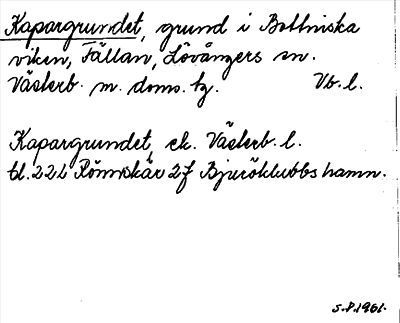 Kapargrundet, grund i Bottniska
viken, Fällan, Lövångers sn.
Västerb. m. doms. tg. Vb. l.
Kapargrundet, ek. Västerb. l.
bl. 22L Rönnskär 2f Bjuröklubbs hamn.
S.P. 1961.